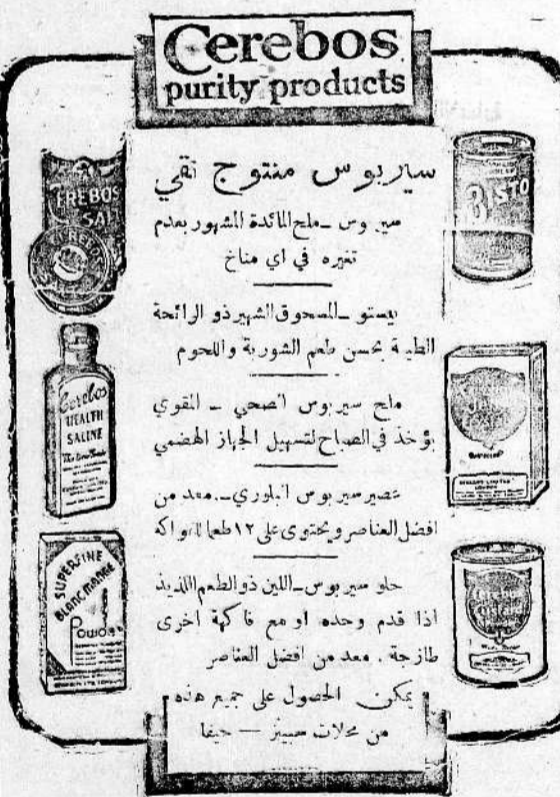 Cerebos
purity products
سيربوس منتوج نقي
سيربوس ــ ملح المائدة المشهور بعدم
تغيره في اي مناخ
بيستو ــ المسحوق الشهير ذو الرائحة
الطيبة يحسن طعم الشوربة واللحوم
ملح سيربوس الصحي ــ المقوي
يؤخذ في الصباح لتسهيل الجهاز الهضمي
عصير سيربوس البلوري ــ معد من
افضل العناصر ويحتوى على ١٢ طعما للفواكه
حلو سيربوس ــ اللين ذو الطعم اللذيذ
اذا قدم وحده او مع فاكهة اخرى
طازجة . معد من افضل العناصر
يمكن الحصول على جميع هذه
من محلات سبينز — حيفا
CEREBOS
SALT
Cerebos
HEALTH
SALINE
SUPERFINE
BLANCMANGE
Powder
BISTO
Cerebos